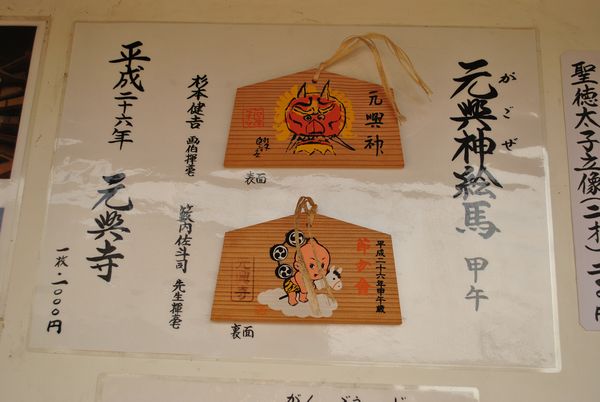 元興神絵馬 甲午
がごぜ
元興神
表面
平成二十六年甲午歳
節分會
元興寺
裏面
杉本健吉 画伯揮毫
籔内佐斗司 先生揮毫
平成二十六年 元興寺
一枚・二〇〇〇円
聖徳太子立像(二才)
二〇〇円
がんごうじ